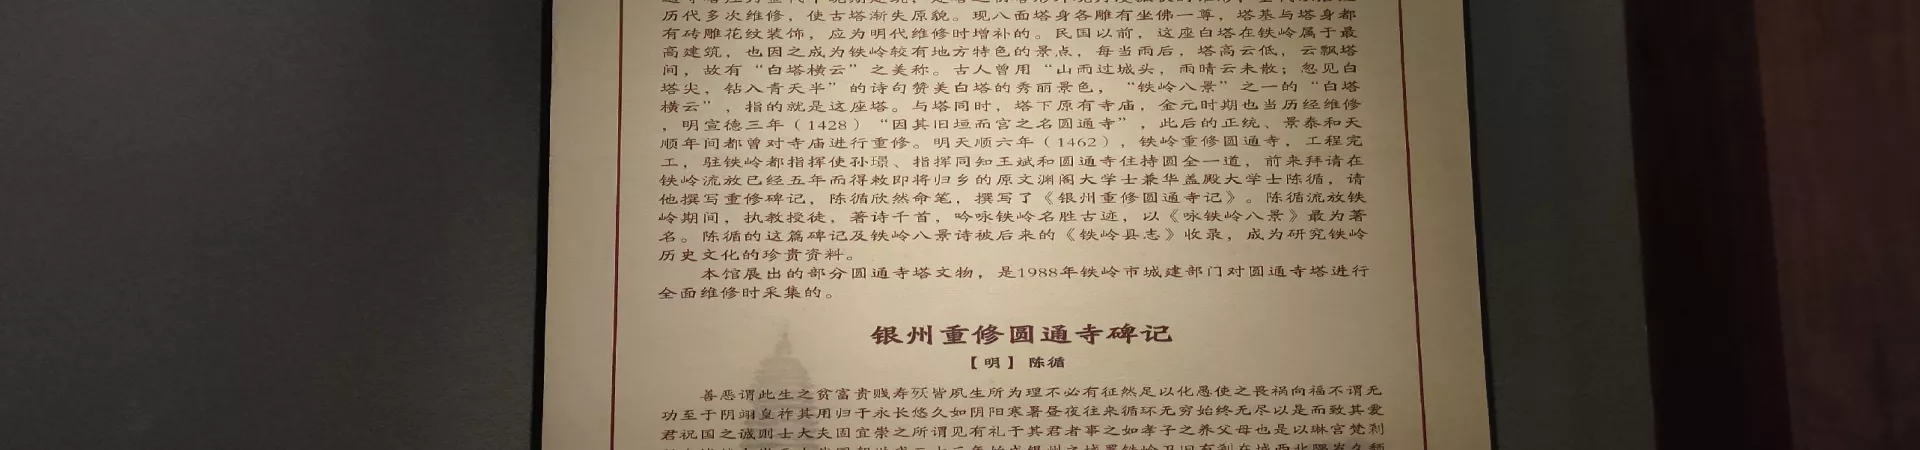 历代多次维修，使古塔渐失原貌。现八面塔身各雕有坐佛一尊，塔基与塔身都
有砖雕花纹装饰，应为明代维修时增补的。民国以前，这座白塔在铁岭属于最
高建筑，也因之成为铁岭较有地方特色的景点，每当雨后，塔高云低，云飘塔
间，故有“白塔横云”之美称。古人曾用“山雨过城头，雨晴云未散；忽见白
塔尖，钻入青天半”的诗句赞美白塔的秀丽景色，“铁岭八景”之一的“白塔
横云”，指的就是这座塔。与塔同时，塔下原有寺庙，金元时期也当历经维修
，明宣德三年（1428）“因其旧垣而宫之名圆通寺”，此后的正统、景泰和天
顺年间都曾对寺庙进行重修。明天顺六年（1462），铁岭重修圆通寺，工程完
工，驻铁岭都指挥使孙璟、指挥同知王斌和圆通寺住持圆全一道，前来拜请在
铁岭流放已经五年而得敕即将归乡的原文渊阁大学士兼华盖殿大学士陈循，请
他撰写重修碑记，陈循欣然命笔，撰写了《银州重修圆通寺记》。陈循流放铁
岭期间，执教授徒，著诗千首，吟咏铁岭名胜古迹，以《咏铁岭八景》最为著
名。陈循的这篇碑记及铁岭八景诗被后来的《铁岭县志》收录，成为研究铁岭
历史文化的珍贵资料。
本馆展出的部分圆通寺塔文物，是1988年铁岭市城建部门对圆通寺塔进行
全面维修时采集的。
银州重修圆通寺碑记
【明】陈循
善恶谓此生之贫富贵贱寿殀皆夙生所为理不必有征然足以化愚使之畏祸向福不谓无
功至于阴翊皇祚其用归于永长悠久如阴阳寒暑昼夜往来循环无穷始终无尽以是而致其爱
君祝国之诚则士大夫固宜崇之所谓见有礼于其君者事之如孝子之养父母也是以琳宫梵刹